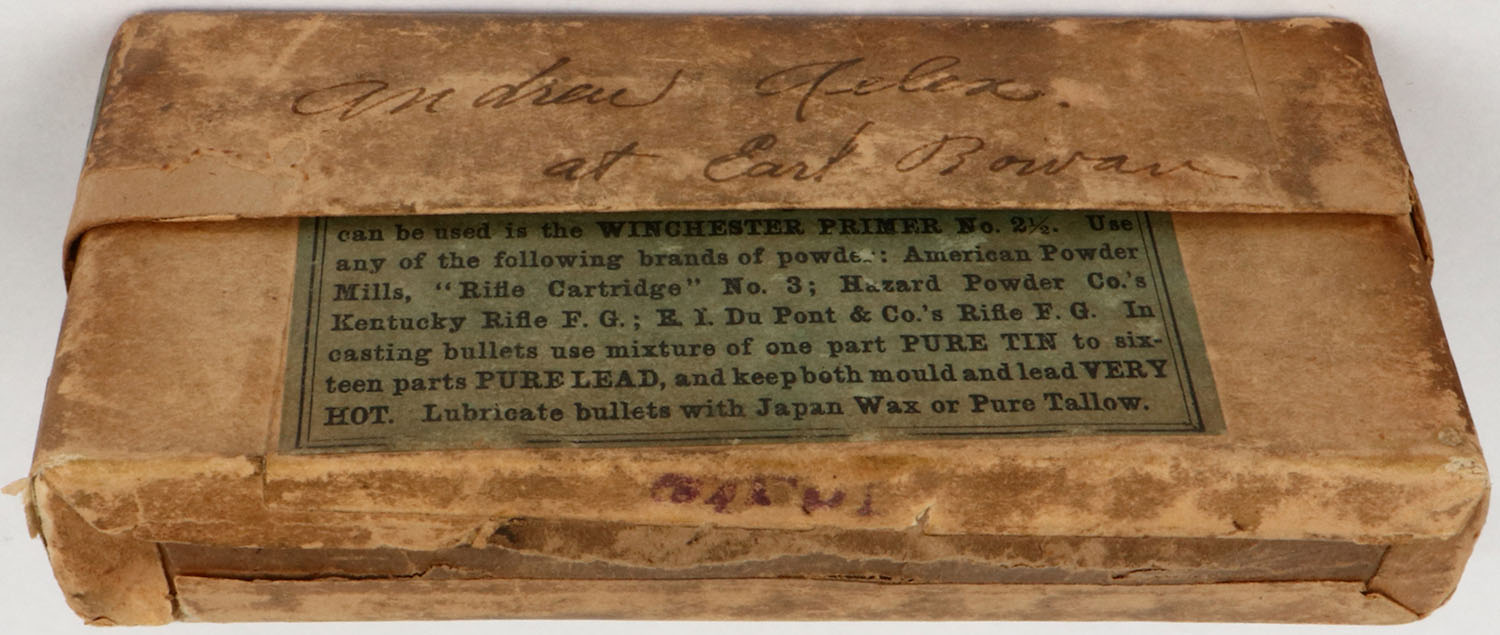 Andrew Felex.
at Earl Bowan
can be used is the WINCHESTER PRIMER No. 2½. Use
any of the following brands of powder: American Powder
Mills, “Rifle Cartridge” No. 3; Hazard Powder Co.'s
Kentucky Rifle F. G.; E. I. Du Pont & Co.'s Rifle F. G. In
casting bullets use mixture of one part PURE TIN to six-
teen parts PURE LEAD, and keep both mould and lead VERY
HOT. Lubricate bullets with Japan Wax or Pure Tallow.